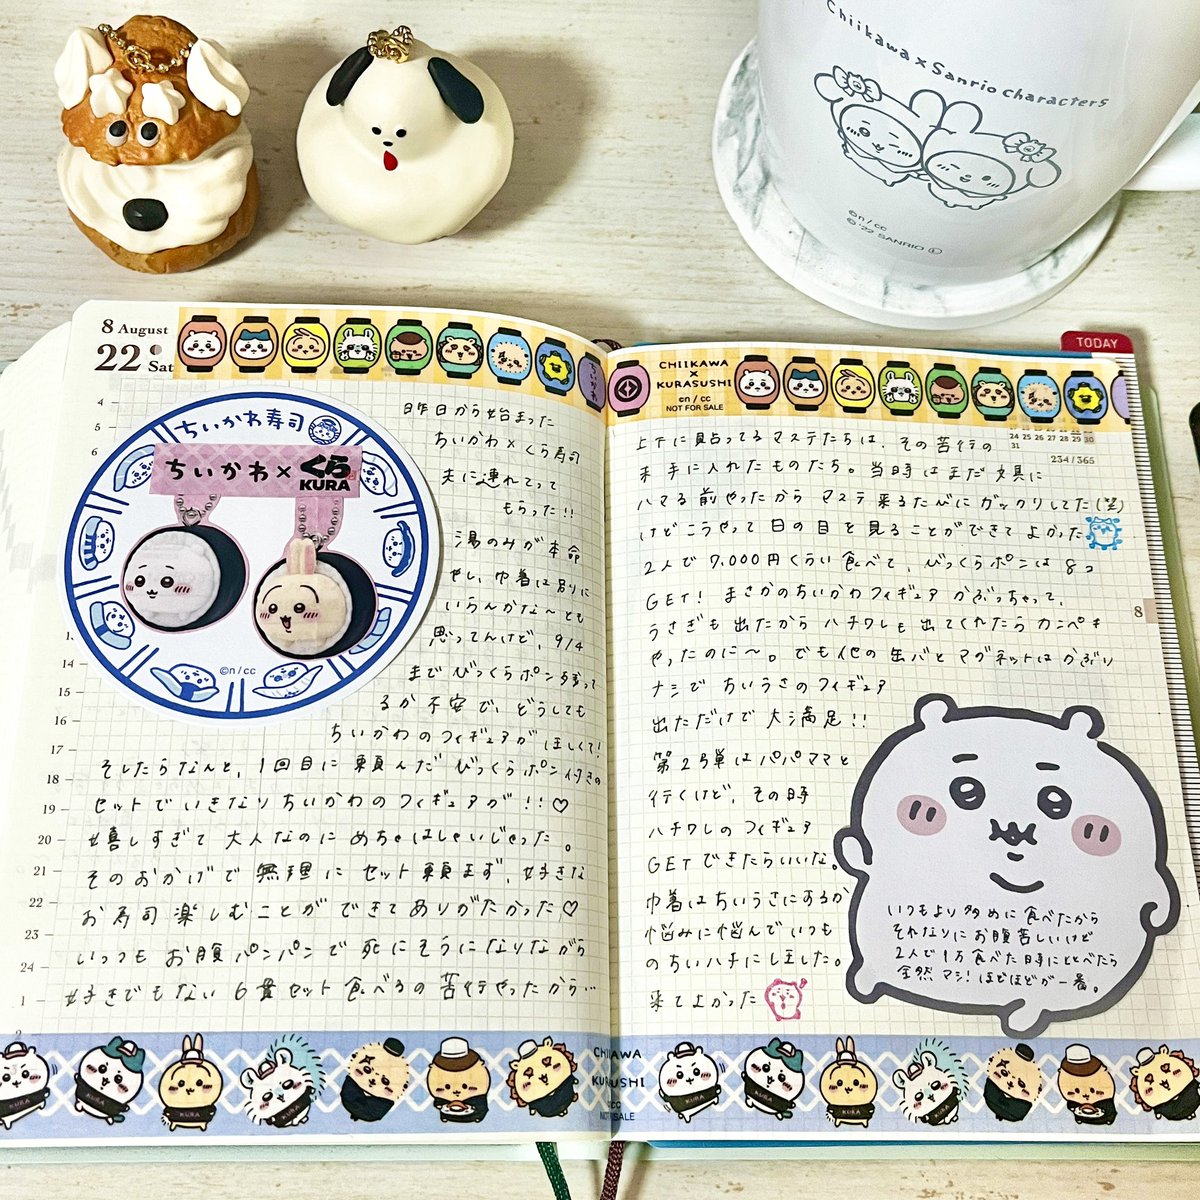 Chiikawa x Sanrio characters
©n/cc
©'22 SANRIO Ⓛ
8 August
22 Sat
4
5
6
14
15
16
17
18
19
20
21
22
23
24
1
2
ちいかわ寿司
ちいかわ×くら
KURA
©n/cc
昨日から始まった
ちいかわ×くら寿司
夫に連れてって
もらった!!
湯のみが本命
やし、巾着は別に
いらんかな〜とも
思ってんけど、9/4
までびっくらポン残って
るか不安で、どうしても
ちいかわのフィギュアがほしくて!
そしたらなんと、1回目に頼んだびっくらポン付きの
セットでいきなりちいかわのフィギュアが!!♡
嬉しすぎて大人なのにめちゃはしゃいじゃった。
そのおかげで無理にセット頼まず、好きな
お寿司楽しむことができてありがたかった♡
いっつもお腹パンパンで死にそうになりながら
好きでもない6貫セット食べるの苦行やったから…
KURA
KURA
KURA
KURA
CHIIKAWA
×
KURASUSHI
©n/cc
NOT FOR SALE
TODAY
24 25 26 27 28 29 30
31
234/365
8
上下に貼ってるマステたちは、その苦行の
末手に入れたものたち。当時はまだ文具に
ハマる前やったからマステ来るたびにガックリしてた(笑)
けどこうやって日の目を見ることができてよかった
2人で7,000円くらい食べて、びっくらポンは8コ
GET! まさかのちいかわフィギュアかぶっちゃって、
うさぎも出たからハチワレも出てくれたらカンペキ
やったのに〜。でも他の缶バとマグネットはかぶり
ナシでちいうさのフィギュア
出ただけで大満足!!
第2弾はパパママと
行くけど、その時
ハチワレのフィギュア
GETできたらいいな。
巾着はちいうさにするか
悩みに悩んでいつも
のちいハチにしました。
来てよかった
いつもより多めに食べたから
それなりにお腹苦しいけど
2人で1万食べた時にくらべたら
全然マシ! ほどほどが一番。
CHIIKAWA
×
KURASUSHI
NOT FOR SALE
KURA
KURA
KURA
KURA